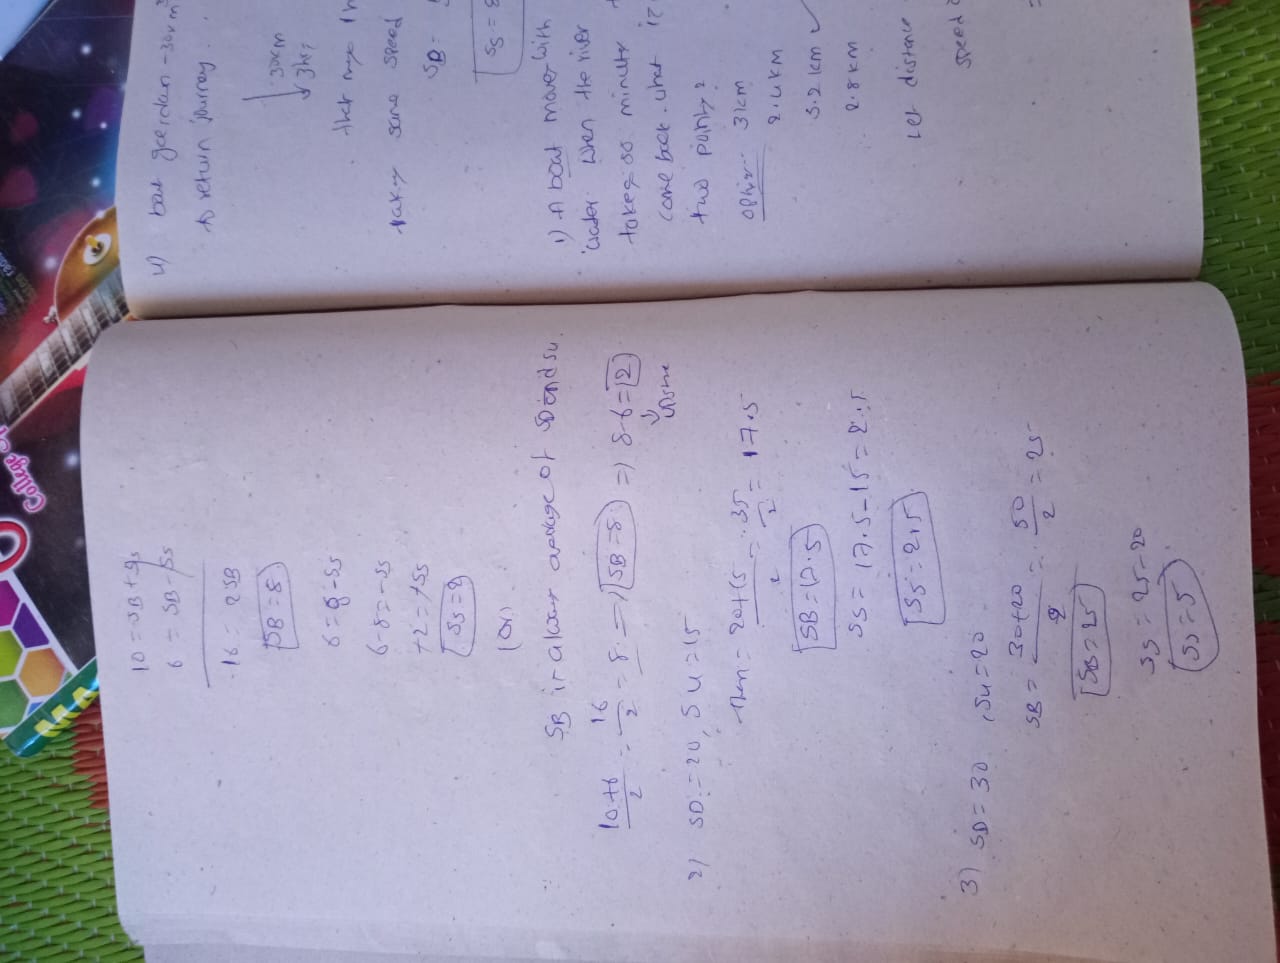 10 = SB + SS
6 = SB - SS
16 = 2SB
SB = 8
6 = 8 - SS
6 - 8 = - SS
+2 = +SS
SS = 2
(or)
SB is always average of SD and SU
10+6/2 = 16/2 = 8 => SB = 8 => 8-6 = 2
2) SD = 20, SU = 15
Then = 20+15/2 = 35/2 = 17.5
SB = 17.5
SS = 17.5 - 15 = 2.5
SS = 2.5
3) SD = 30, SU = 20
SB = 30+20/2 = 50/2 = 25
SB = 25
SS = 25 - 20
SS = 5
4) boat
return journey.
30km
3hrs
same speed
SB =
SS =
1) A boat moves with
water when the river
takes 50 minutes
come back. what
two points?
option 3km
2.4km
5.2km
2.8km
Let distance
speed
College